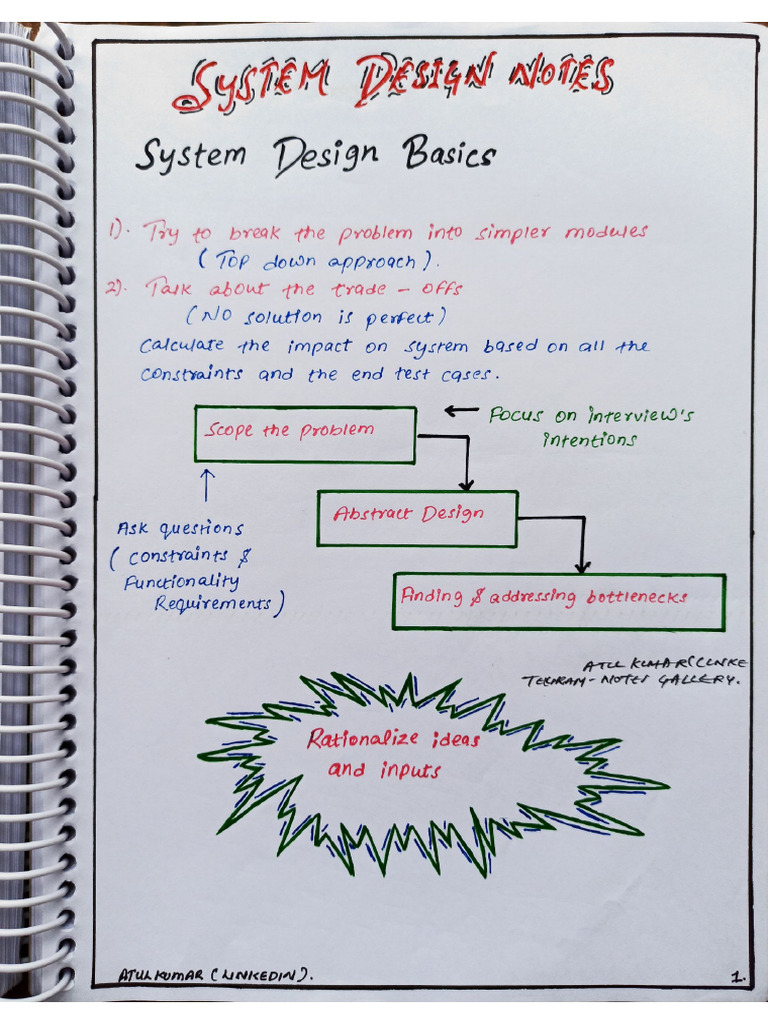 SYSTEM DESIGN NOTES
System Design Basics
1). Try to break the problem into simpler modules
(Top down approach).
2). Talk about the trade - offs
(No solution is perfect)
Calculate the impact on system based on all the
constraints and the end test cases.
Scope the problem
← Focus on interview's
intentions
Abstract Design
Ask questions
(constraints &
Functionality
Requirements)
Finding & addressing bottlenecks
ATUL KUMAR (LINKE
NOTES GALLERY.
Rationalize ideas
and inputs
ATUL KUMAR (LINKEDIN).
1.